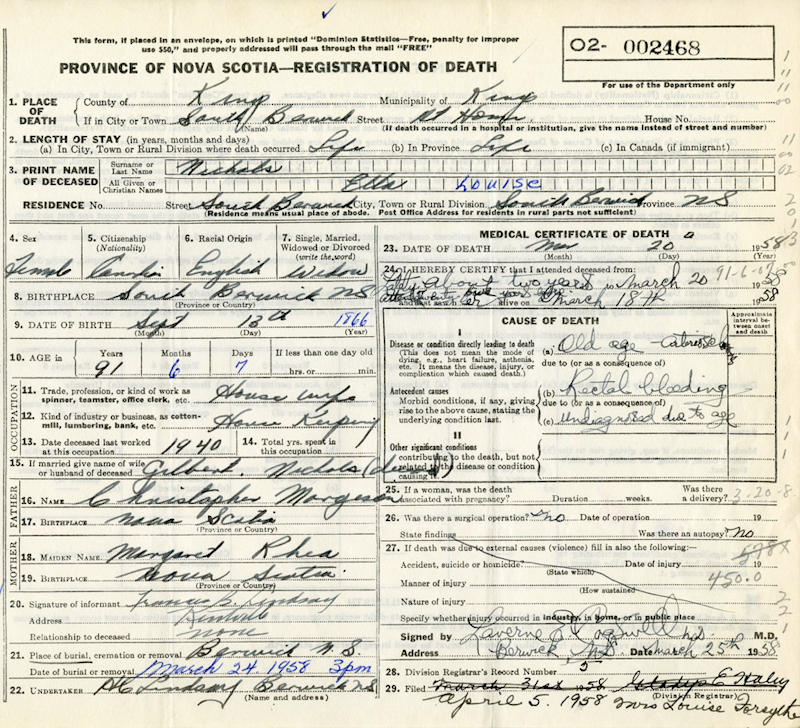 This form, if placed in an envelope, on which is printed "Dominion Statistics—Free, penalty for improper
use $50," and properly addressed will pass through the mail "FREE"
O2- 002468
PROVINCE OF NOVA SCOTIA—REGISTRATION OF DEATH
For use of the Department only
1. PLACE OF DEATH County of Kings Municipality of Kings
If in City or Town South Berwick Street At Home House No.
(Name) (If death occurred in a hospital or institution, give the name instead of street and number)
2. LENGTH OF STAY (in years, months and days)
(a) In City, Town or Rural Division where death occurred Life (b) In Province Life (c) In Canada (if immigrant)
3. PRINT NAME OF DECEASED Surname or Last Name Nichols
All Given or Christian Names Etta Louise
RESIDENCE No. Street South Berwick City, Town or Rural Division South Berwick Province NS
(Residence means usual place of abode. Post Office Address for residents in rural parts not sufficient)
4. Sex 5. Citizenship (Nationality) 6. Racial Origin 7. Single, Married, Widowed or Divorced (write the word)
Female Canadian English Widow
8. BIRTHPLACE South Berwick NS
(Province or Country)
9. DATE OF BIRTH Sept 13th 1866
(Month) (Day) (Year)
10. AGE in Years Months Days If less than one day old
91 6 7 hrs. or min.
OCCUPATION
11. Trade, profession, or kind of work as spinner, teamster, office clerk, etc. House wife
12. Kind of industry or business, as cotton-mill, lumbering, bank, etc. House Keeping
13. Date deceased last worked at this occupation 1940 14. Total yrs. spent in this occupation
15. If married give name of wife or husband of deceased Gilbert Nichols (deceased)
FATHER
16. NAME Christopher Margeson
17. BIRTHPLACE Nova Scotia
(Province or Country)
MOTHER
18. MAIDEN NAME Margaret Rhea
19. BIRTHPLACE Nova Scotia
(Province or Country)
20. Signature of informant Lindsay
Address
Relationship to deceased none
21. Place of burial, cremation or removal Berwick N.S.
Date of burial or removal March 24. 1958 3pm
22. UNDERTAKER Lindsay Berwick NS
(Name and address)
MEDICAL CERTIFICATE OF DEATH
23. DATE OF DEATH Mar 20 1958
(Month) (Day) (Year)
24. I HEREBY CERTIFY that I attended deceased from:
about two years to March 20 1958
91-6-07
and last saw her alive on March 18th 1958
CAUSE OF DEATH
Approximate interval between onset and death
I
Disease or condition directly leading to death
(This does not mean the mode of dying, e.g., heart failure, asthenia, etc. It means the disease, injury, or complication which caused death.)
(a) Old age
due to (or as a consequence of)
Antecedent causes
Morbid conditions, if any, giving rise to the above cause, stating the underlying condition last.
(b) Rectal bleeding
due to (or as a consequence of)
(c) undiagnosed due to age
II
Other significant conditions
contributing to the death, but not related to the disease or condition causing it.
25. If a woman, was the death associated with pregnancy? Duration weeks. Was there a delivery?
3-20-8
26. Was there a surgical operation? no Date of operation 19
State findings Was there an autopsy? No
27. If death was due to external causes (violence) fill in also the following:—
Accident, suicide or homicide? Date of injury 19
(State which)
450.0
Manner of injury
(How sustained
Nature of injury
Specify whether injury occurred in industry, in home, or in public place
Signed by Laverne B Cogswell M.D.
Address Berwick, N.S. Date March 25th 1958
28. Division Registrar's Record Number 5
29. Filed March 31st 1958 Gladys E Haley
(Division Registrar)
April 5. 1958 Mrs Louise Forsythe